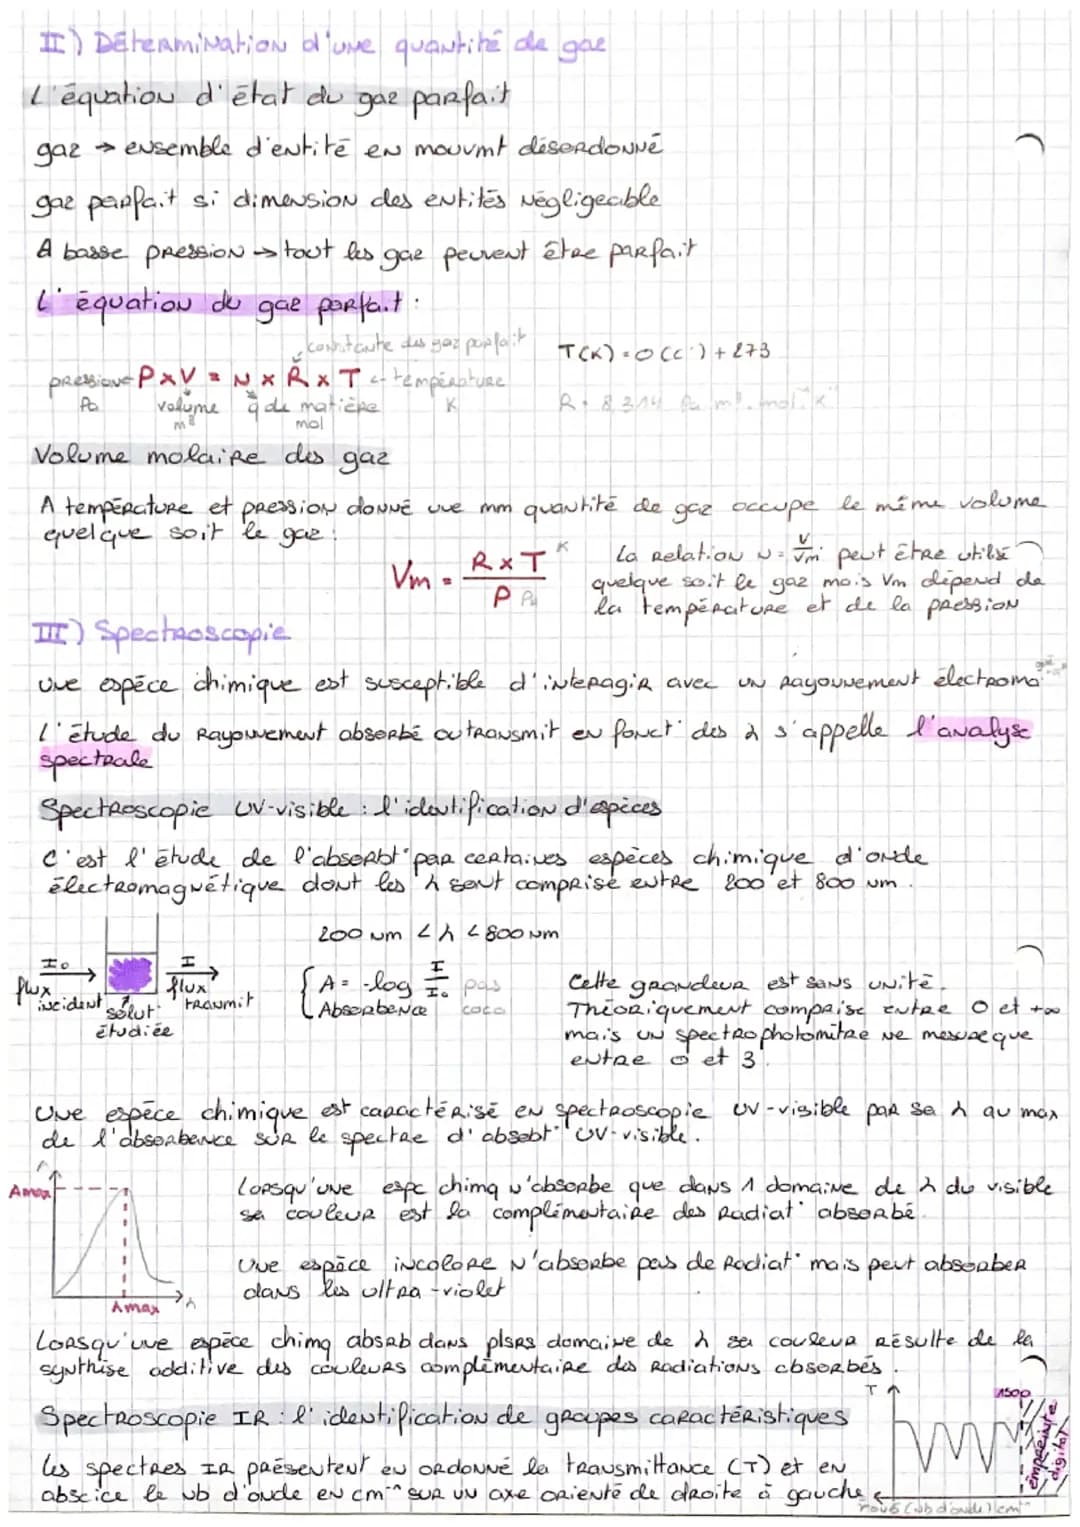 II) Détermination d'une quantité de gaz
L'équation d'état du gaz parfait
gaz → ensemble d'entité en mouvmt désordonné
gaz parfait si dimension des entités négligeable
A basse pression → tout les gaz peuvent être parfait
L'équation du gaz parfait :
constante des gaz parfait
T(K) = θ(C°) + 273
pression ← P x V = N x R x T ← température
Pa volume q de matière K
m³ mol
R = 8,314 Pa m³. mol⁻¹ K⁻¹
Volume molaire des gaz
A température et pression donné une mm quantité de gaz occupe le même volume
quelque soit le gaz :
Vm = R x T K / P Pa
La relation N = V/Vm peut être utilsé
quelque soit le gaz mais Vm dépend de
la température et de la pression
III) Spectroscopie
une espèce chimique est susceptible d'interagir avec un rayonnement électroma
L'étude du rayonnement absorbé ou transmit en fonct° des λ s'appelle l'analyse
spectrale
Spectroscopie UV-visible : l'identification d'espèces
C'est l'étude de l'absorbt° par certaines espèces chimique d'onde
électromagnétique dont les λ sont comprise entre 200 et 800 nm.
200 nm < λ < 800 nm
I₀ flux incident
solut° étudiée
I flux transmit
A = -log I/I₀ pas
Absorbence coco
Cette grandeur est sans unité.
Théoriquement comprise entre 0 et +∞
mais un spectrophotomètre ne mesure que
entre 0 et 3.
Une espèce chimique est caractérisé en spectroscopie UV-visible par sa λ au max
de l'absorbance sur le spectre d'absobt° UV-visible.
A
Amax
λmax λ
Lorsqu'une espc chimq n'absorbe que dans 1 domaine de λ du visible
sa couleur est la complémentaire des radiat° absorbé.
Une espèce incolore N'absorbe pas de Radiat° mais peut absorber
dans les ultra-violet
Lorsqu'une espèce chimq absrb dans plsrs domaine de λ sa couleur résulte de la
synthèse additive des couleurs complémentaire des radiations absorbés.
Spectroscopie IR : l'identification de groupes caractéristiques
Les spectres IR présentent en ordonné la transmittance (T) et en
abscice le nb d'onde en cm⁻¹ sur un axe orienté de droite à gauche
T
1500
empreinte
digital
(nb d'onde) cm⁻¹